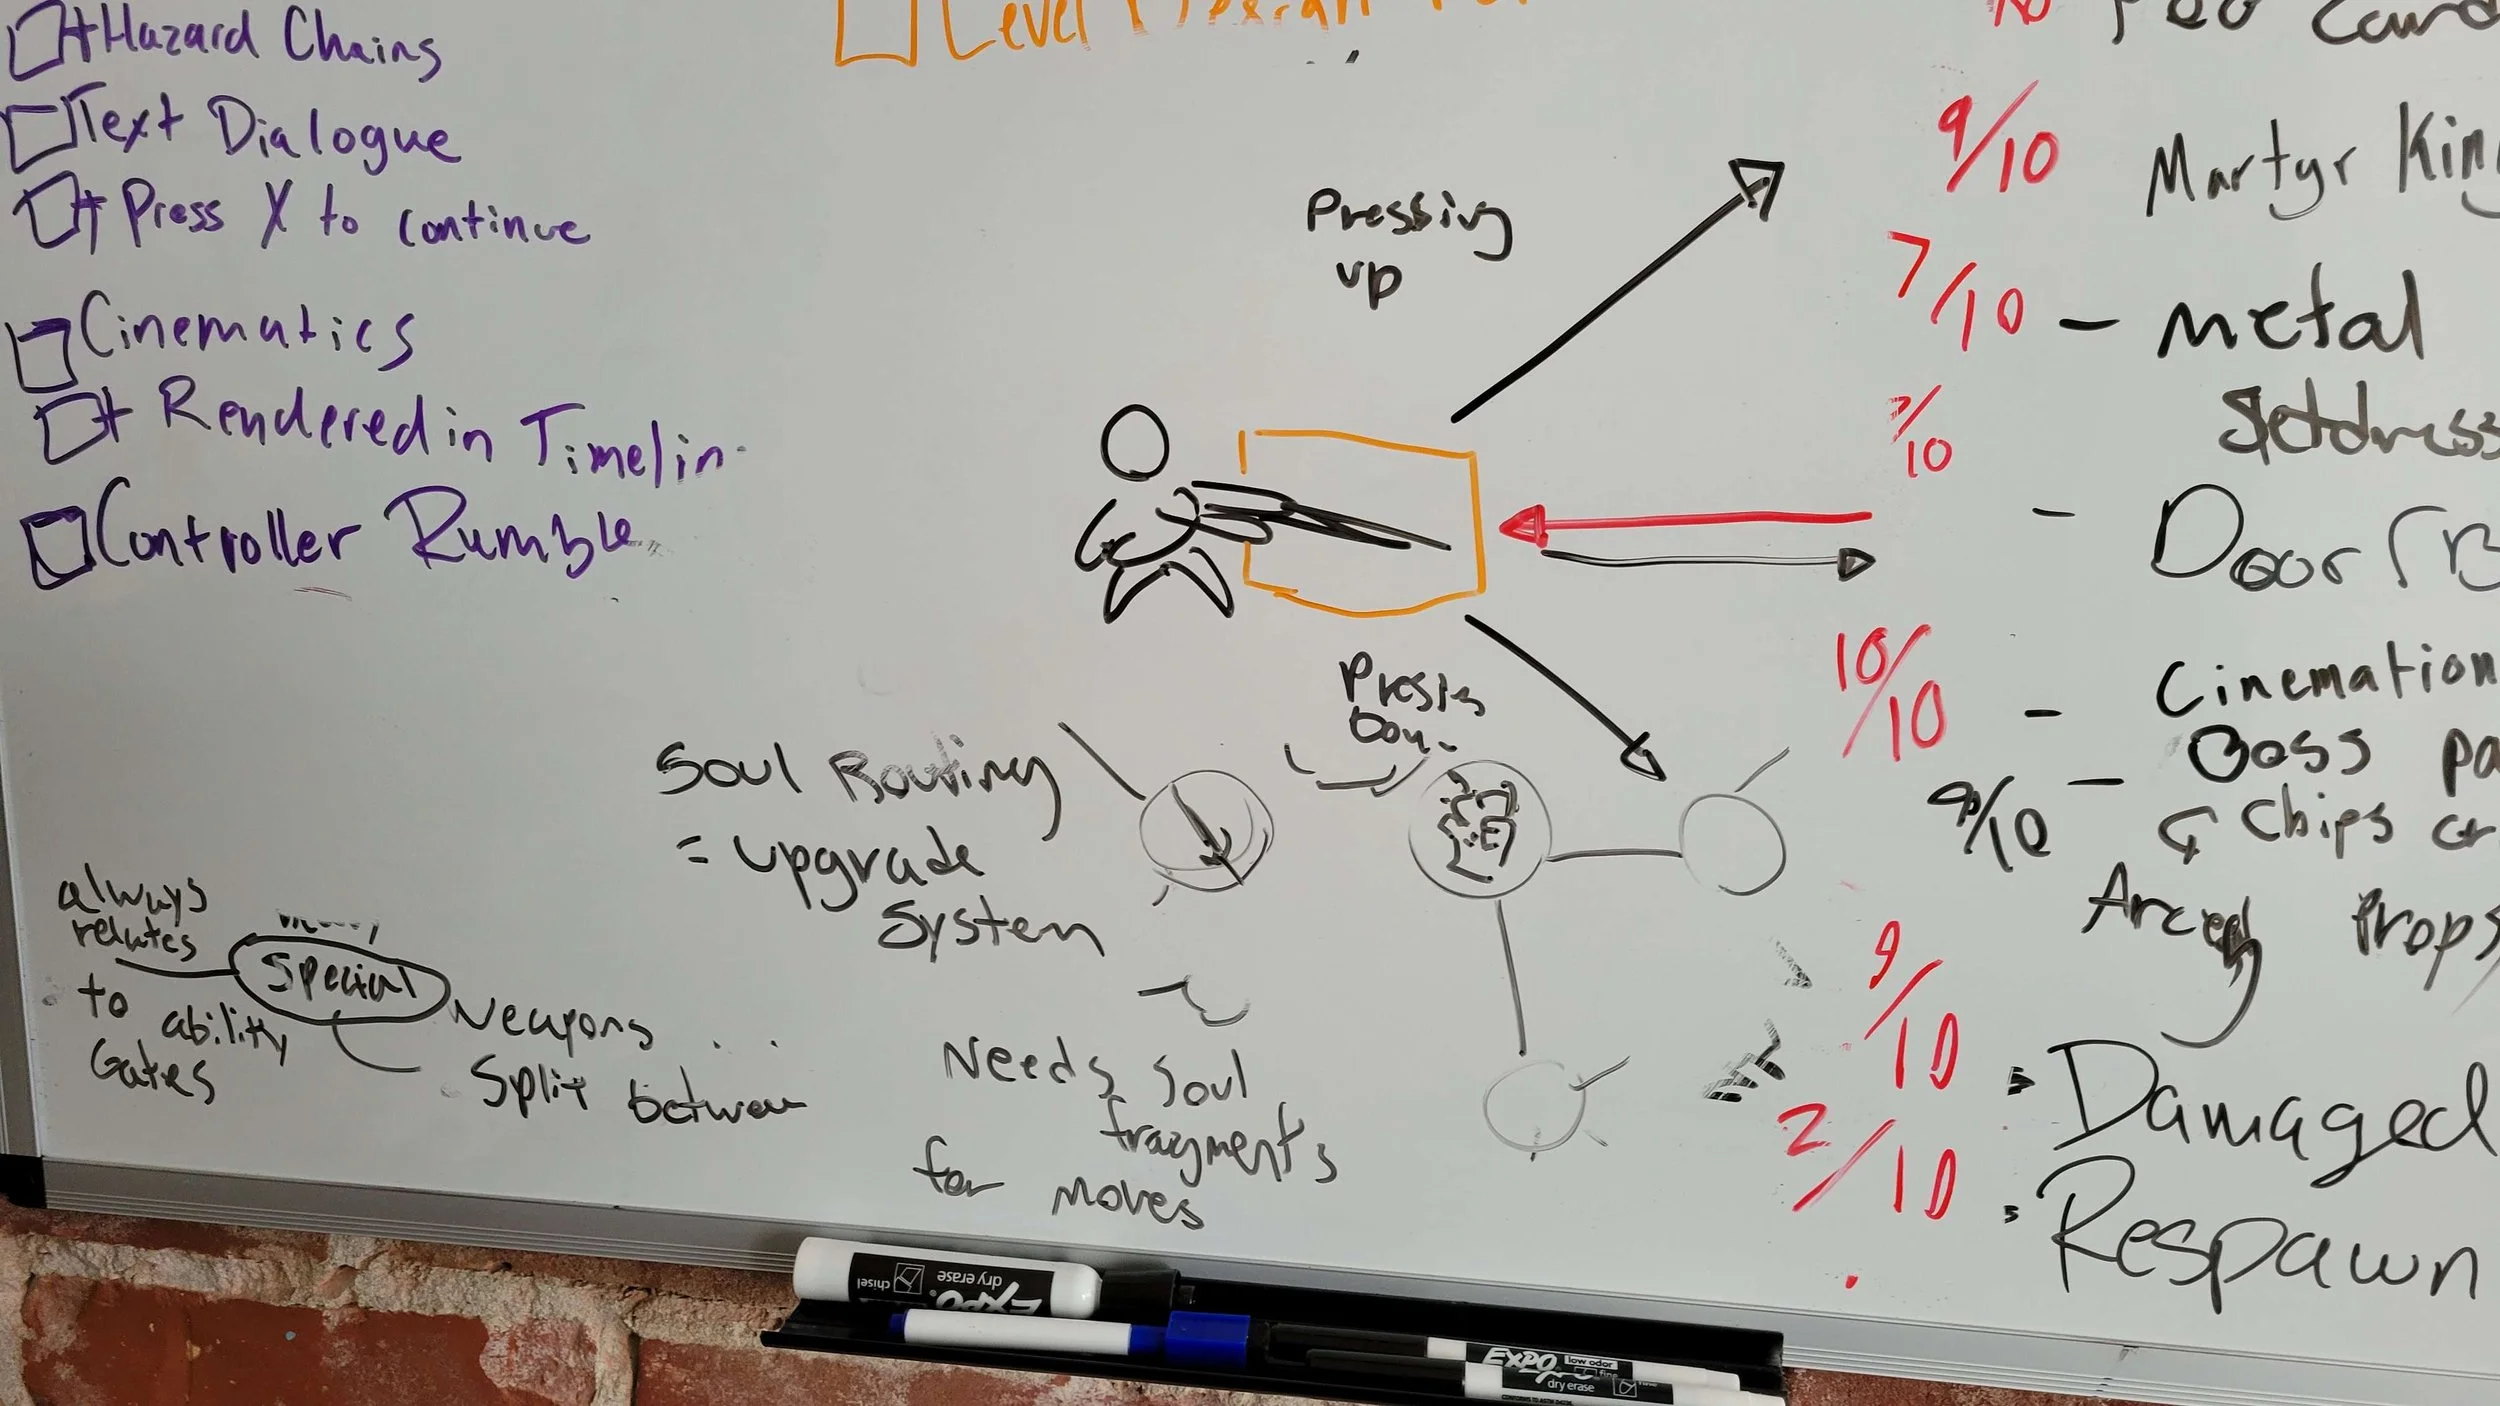 Hazard Chains
Text Dialogue
Press X to continue
Cinematics
Rendered in Timelin
Controller Rumble
Level
Pressing
up
9/10 Martyr King
7/10 - Metal
7/10
- Door
10/10 - Cinemation
9/10 - Boss pa
Chips
Props
9/10 Damaged
2/10 Respawn
Soul Routing
= upgrade
System
Needs Soul
fragments
for moves
always
relates
to ability
Gates
Special
Weapons
Split between
EXPO
dry erase
chisel
EXPO
low odor
fine
dry erase